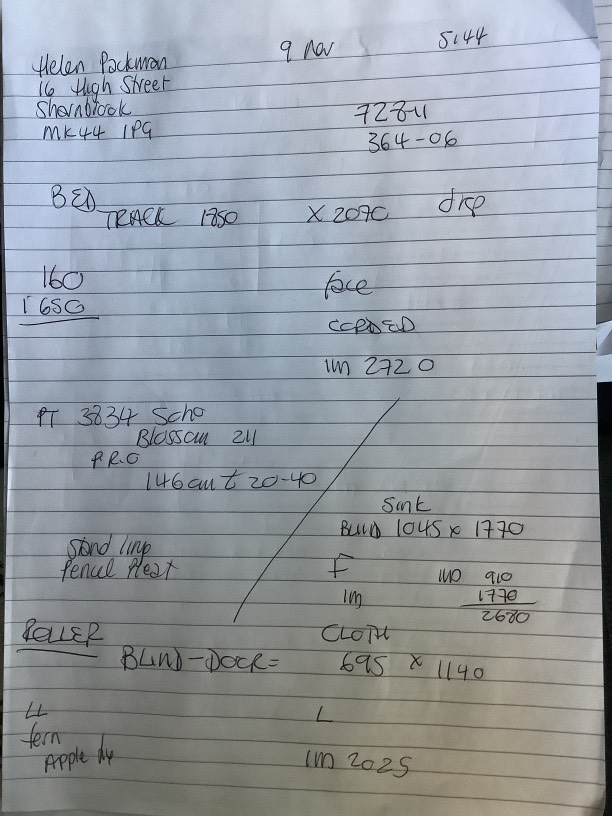 9 Nov 5144
Helen Packman
16 High Street
Sharnbrook
MK44 1PG
728-11
364-06
BED
TRACK 1850 X 2070 drop
160 face
1650
CORDED
1m 2720
PT 3834 Soho
Blossom 211
P.R.O
146 cm t 20-40
Sink
BLIND 1045 x 1770
Stand
Pencil Pleat
F 910
1m 1770
2680
ROLLER CLOTH
BLIND-DOOR= 695 x 1140
LL L
fern
Apple 1m 2025